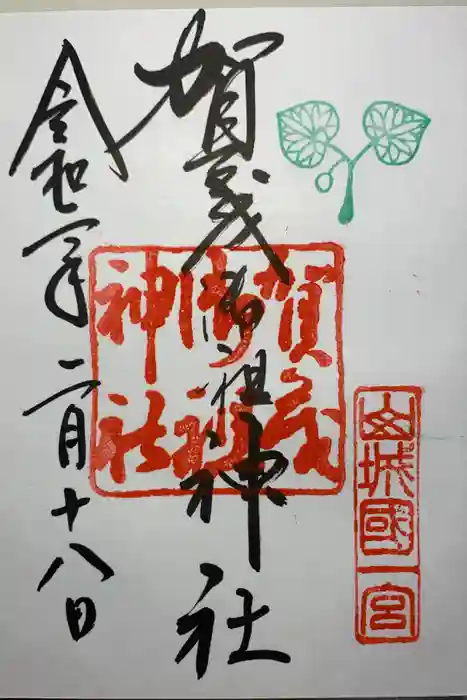 山城國一宮
賀茂御祖神社
賀茂
御祖
神社
令和七年二月十八日